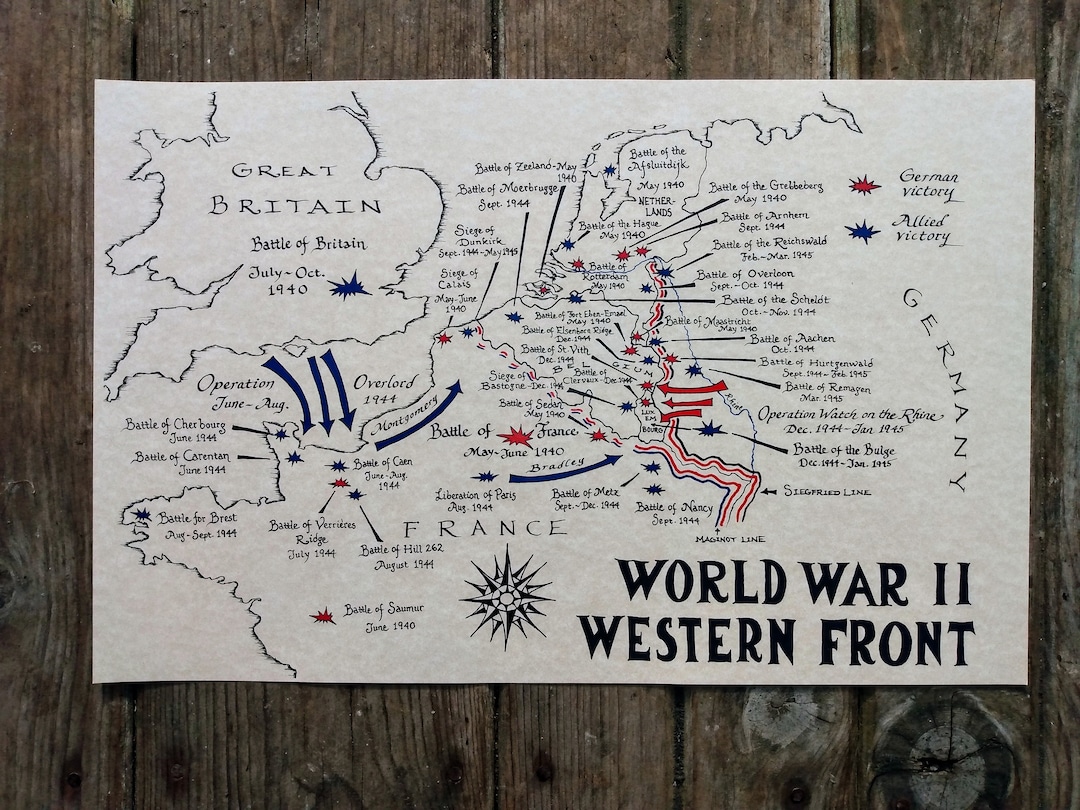 GREAT
BRITAIN
Battle of Britain
July-Oct.
1940
Battle of Zeeland-May
1940
Battle of Moerbrugge
Sept. 1944
Siege of
Dunkirk
Sept. 1944-May 1945
Siege of
Calais
May-June
1940
Battle of the
Afsluitdijk
May 1940
NETHER-
LANDS
Battle of the Hague
May 1940
Battle of
Rotterdam
May 1940
Battle of the Grebbeberg
May 1940
Battle of Arnhem
Sept. 1944
Battle of the Reichswald
Feb.-Mar. 1945
Battle of Overloon
Sept.-Oct 1944
Battle of the Scheldt
Oct.-Nov. 1944
Battle of Maastricht
May 1940
Battle of Aachen
Oct. 1944
Battle of Hurtgenwald
Sept. 1944-Feb. 1945
Battle of Remagen
Mar. 1945
Operation Watch on the Rhine
Dec. 1944-Jan. 1945
Battle of the Bulge
Dec. 1944-Jan. 1945
German
victory
Allied
victory
GERMANY
Rhine
Battle of Fort Eben-Emael
May 1940
Battle of Elsenborn Ridge
Dec. 1944
Battle of St. Vith
Dec. 1944
BELGIUM
Battle of
Clervaux-Dec. 1944
Siege of
Bastogne-Dec. 1944
Battle of Sedan
May 1940
LUX
EM
BOURG
Operation Overlord
June-Aug. 1944
Montgomery
Battle of France
May-June 1940
Bradley
Battle of Cherbourg
June 1944
Battle of Carentan
June 1944
Battle of Caen
June-Aug.
1944
Liberation of Paris
Aug. 1944
Battle of Metz
Sept.-Dec. 1944
Battle of Nancy
Sept. 1944
SIEGFRIED LINE
MAGINOT LINE
Battle for Brest
Aug-Sept. 1944
Battle of Verrières
Ridge
July 1944
Battle of Hill 262
August 1944
FRANCE
Battle of Saumur
June 1940
WORLD WAR II
WESTERN FRONT